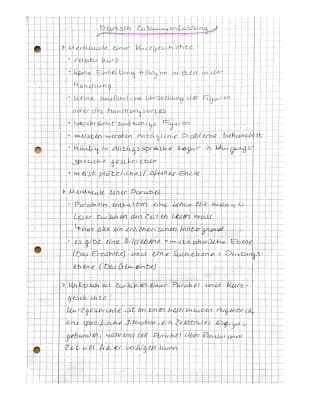 Deutsch Zusammenfassung
> Merkmale einer Kurzgeschichte:
· relativ kurz
· keine Einleitung → Beginn mitten in der
Handlung
· keine ausführliche Vorstellung der Figuren
oder des Handlungsortes
· Figuren
· meistens werden alltägliche Probleme behandelt
· Häufig in Alltagssprache sogar in Umgangs-
sprache geschrieben
· meist plötzliches/ offenes Ende
> Merkmale einer Parabel
· Parabeln enthalten eine Lehre die man als
Leser zwischen den Zeilen lesen muss
hat also ein erzieherischen Hintergrund
· es gibt eine Bildebene = metaphorische Ebene
(Das Erzählte) und eine Sachebene = Deutungs-
ebene (Das Gemeinte)
> Unterschied zwischen einer Parabel und Kurz-
geschichte
Kurzgeschichte ist an einen bestimmten Augenblick,
eine spezifische Situation, ein zentrales
gebunden, während die Parabel über Raum und
Zeit viel freier verfügen kann